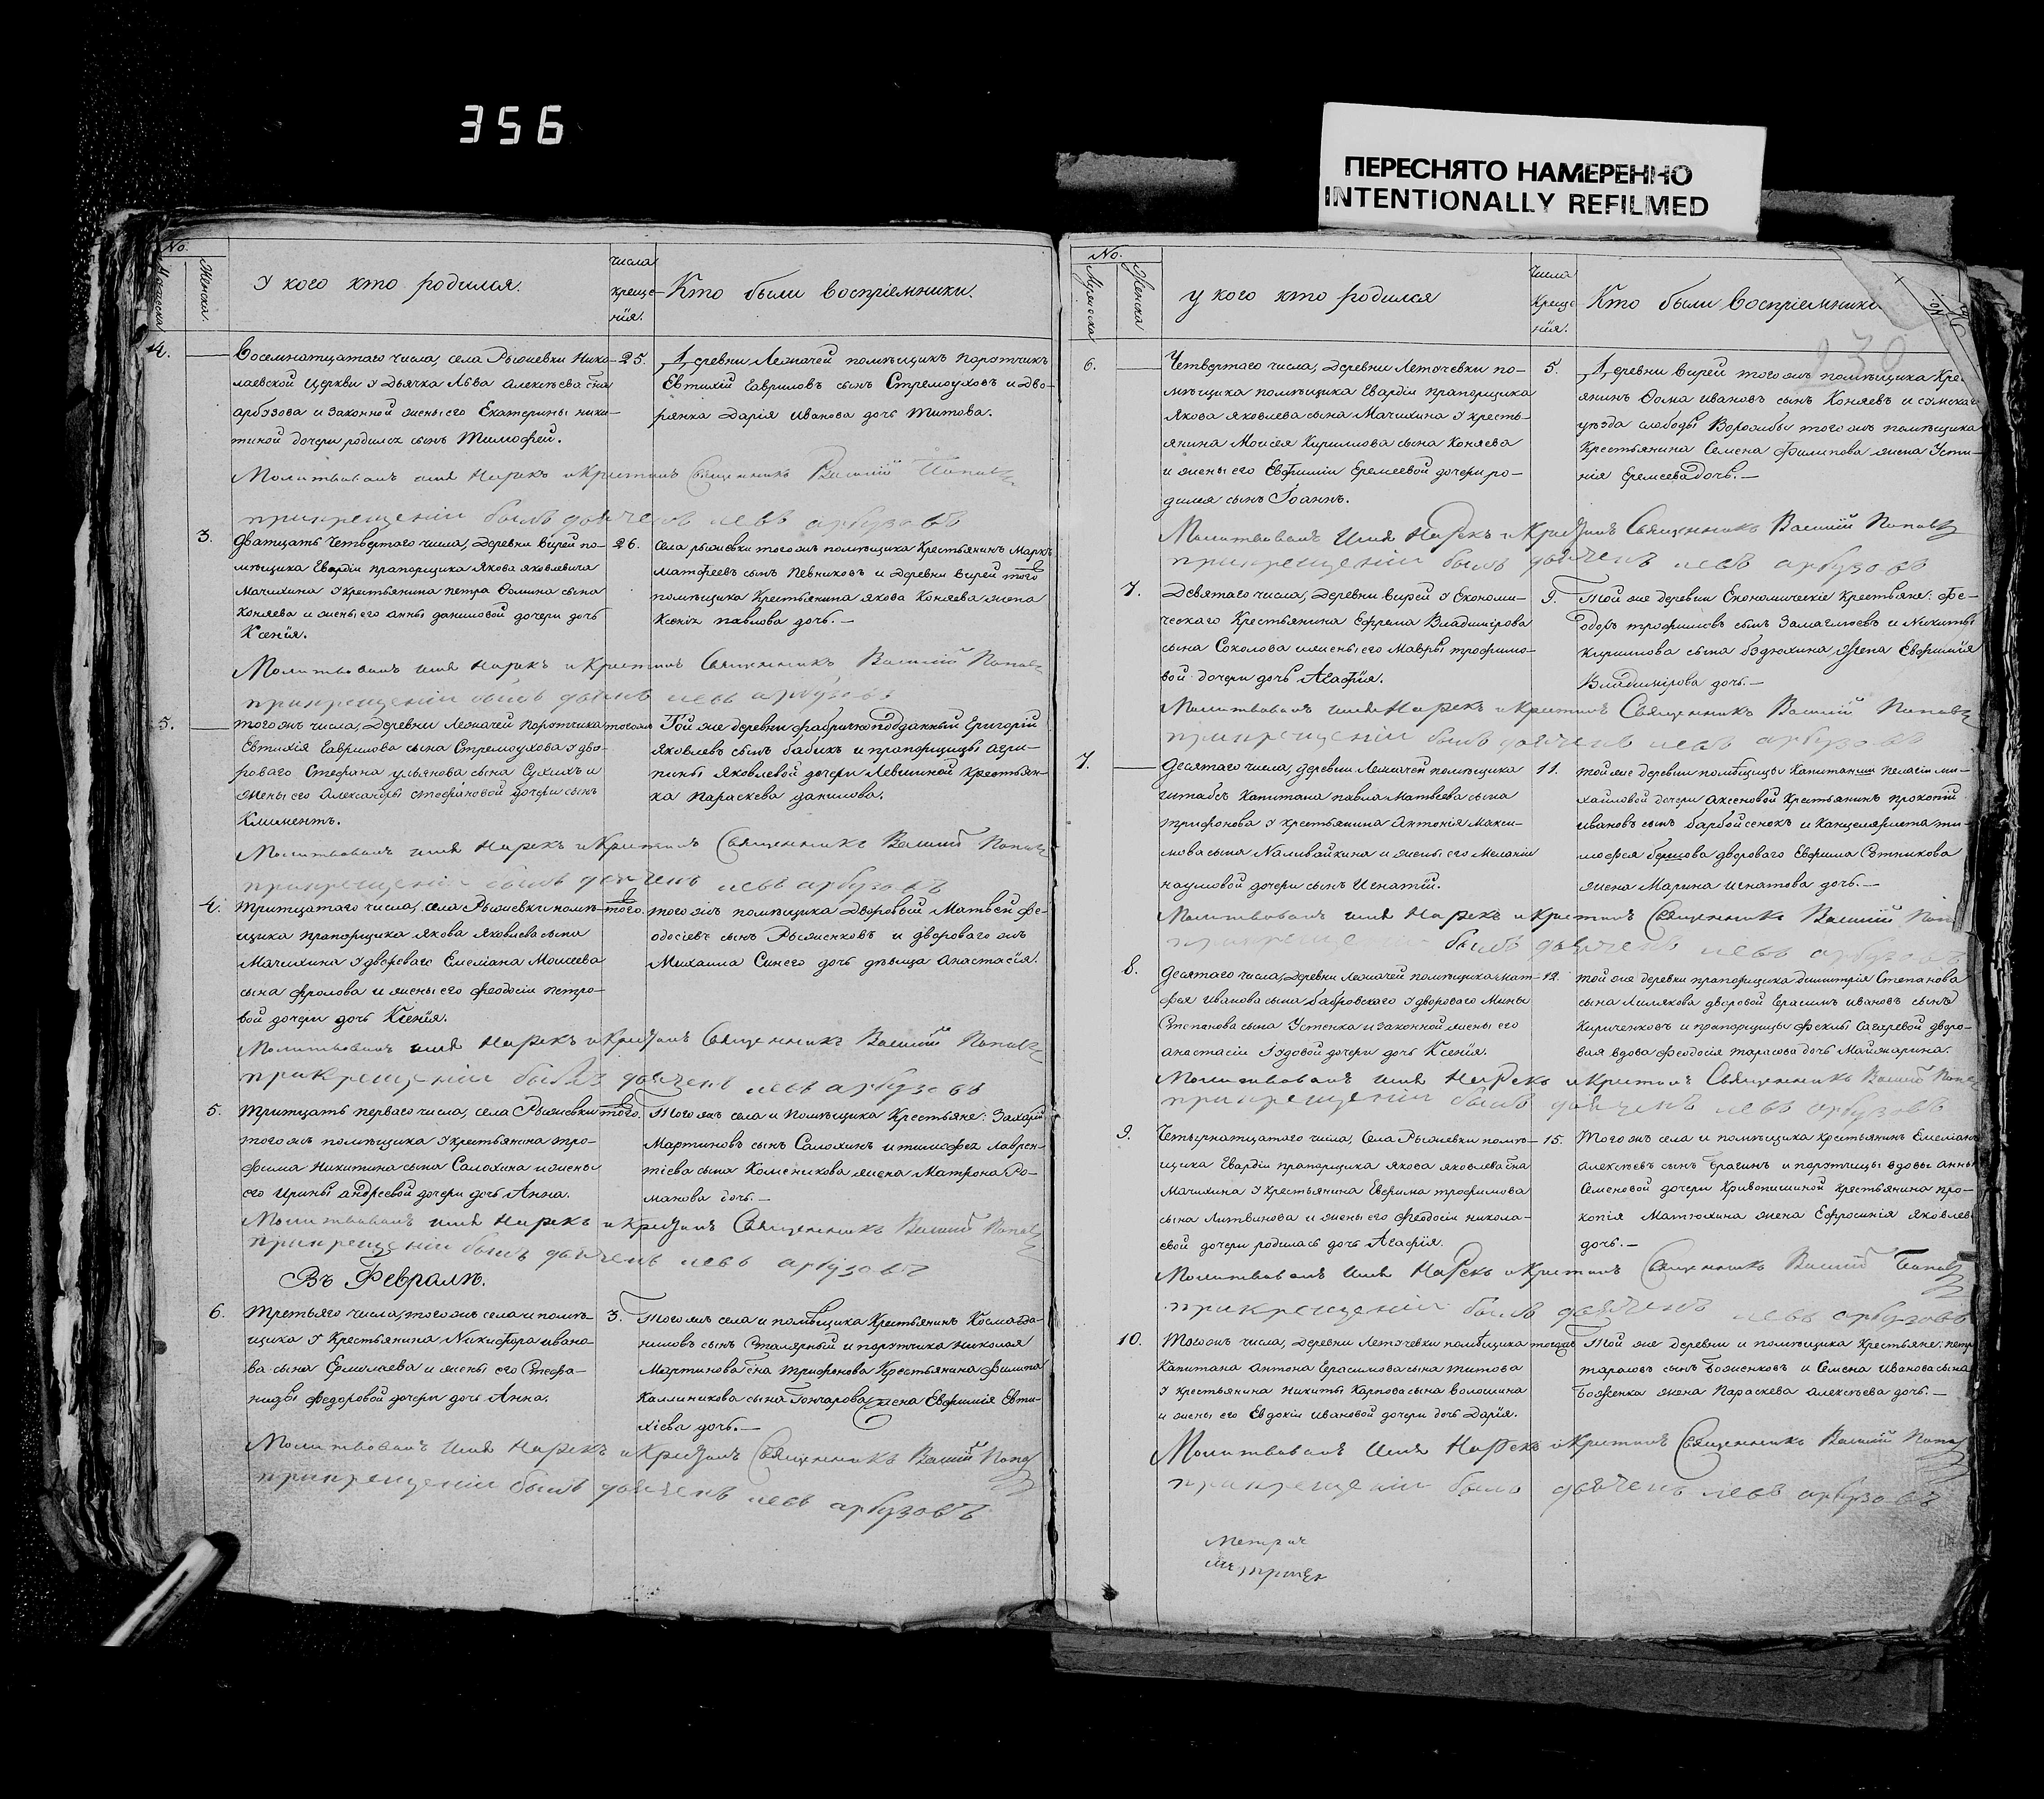 356
ПЕРЕСНЯТО НАМЕРЕННО
INTENTIONALLY REFILMED
No.
Мужеска
Женска.
У кого кто родился.
числа
креще-
нія.
Кто были воспріемники.
4.
Восемнатцатаго числа, села Рыжевки Нико-
лаевской церкви у Дьячка Льва Алексѣева сна
арбузова и законной жены его Екатерины ники-
тиной дочери родился сынъ Тимофей.
25.
Деревни Лежачей помѣщикъ порутчикъ
Евтихій Гавриловъ сынъ Стремоуховъ и дво-
рянка Дарія Иванова дочь Титова.
Молитвовалъ имя Нарекъ и Крестилъ Священникъ Василій Поповъ
прикрещеніи былъ дьячекъ левъ арбузовъ
3.
Дватцать четвертаго числа, деревни Вирей по-
мѣщика Гвардіи прапорщика Якова Яковлевича
Мачихина у крестьянина петра Фомина сына
Коняева и жены его анны даниловой дочери дочь
Ксенія.
26.
села рыжевки того жъ помѣщика Крестьянинъ Маркъ
матфеевъ сынъ Певниковъ и деревни Вирей того
помѣщика Крестьянина якова Коняева жена
Ксенія павлова дочь.—
Молитвовалъ имя Нарекъ и Крестилъ Священникъ Василій Поповъ
прикрещеніи былъ дьячекъ левъ арбузовъ
5.
того жъ числа, деревни Лежачей порутчика
Евтихія Гаврилова сына Стремоухова у дво-
роваго Стефана ульянова сына Сухихъ и
жены его Александры стефановой дочери сынъ
Климентъ.
тогожъ
Той же деревни фабричноподданный Григорій
яковлевъ сынъ бабихъ и прапорщицы агри-
пины Яковлевой дочери Левшиной крестьян-
ка Параскева данилова.
Молитвовалъ имя Нарекъ и Крестилъ Священникъ Василій Поповъ
прикрещеніи былъ дьячекъ левъ арбузовъ
4.
тритцатаго числа, села Рыжевки помѣ-
щика прапорщика якова Яковлева сына
Мачихина у двороваго Емеліана Моисеева
сына фролова и жены его феодосіи петро-
вой дочери дочь Ксенія.
того.
того жъ помѣщика Дворовый Матвей фе-
одосіевъ сынъ Рыженковъ и двороваго жъ
Михаила Синего дочь дѣвица анастасія.
Молитвовалъ имя Нарекъ и Крестилъ Священникъ Василій Поповъ
прикрещеніи былъ дьячекъ левъ арбузовъ
5.
тритцать перваго числа, села Рыжевки
того жъ помѣщика у крестьянина тро-
фима Никитина сына Салохина и жены
его Ирины андреевой дочери дочь Анна.
того.
Того жъ села и помѣщика Крестьяне: Захарій
Мартиновъ сынъ Салохинъ и тимофея лаврен-
тіева сына Коленикова жена Матрона Ро-
манова дочь.—
Молитвовалъ имя Нарекъ и Крестилъ Священникъ Василій Поповъ
прикрещеніи былъ дьячекъ левъ арбузовъ
Въ Февралѣ.
6.
Третьяго числа, того жъ села и помѣ-
щика у Крестьянина Никифора ивано-
ва сына Ермолаева и жены его Стефа-
ниды федоровой дочери дочь Анна.
3.
Того жъ села и помѣщика Крестьянинъ Косма да-
ниловъ сынъ Сталярный и порутчика николая
Мартинова сна трифонова Крестьянина филипа
Каллиникова сына Гончарова жена Евфимія Евти-
хіева дочь.—
Молитвовалъ имя Нарекъ и Крестилъ Священникъ Василій Поповъ
прикрещеніи былъ дьячекъ левъ арбузовъ
No.
Мужеска
Женска
у кого кто родился
числа
креще-
нія.
Кто были воспріемники
No.
230
6.
Четвертаго числа, деревни Леточевки по-
мѣщика помѣщика Гвардіи прапорщика
Якова яковлева сына Мачихина у кресть-
янина Моисея Кириллова сына Коняева
и жены его Евфиміи Еремеевой дочери ро-
дился сынъ Іоаннъ.
5.
Деревни Вирей того жъ помѣщика Кре
янинъ Фома ивановъ сынъ Коняевъ и сумскаг
уѣзда слободы Ворожбы того жъ помѣщика
Крестьянина Семена филипова жена Усти-
нія Еремеева дочь.—
Молитвовалъ Имя Нарекъ и Крестилъ Священникъ Василій Поповъ
прикрещеніи былъ дьячекъ левъ арбузовъ
7.
Девятаго числа, деревни Вирей у Економи-
ческаго Крестьянина Ефрема Владимірова
сына Соколова и жены его Мавры трофимо-
вой дочери дочь Агафія.
9.
Той же деревни Економическіе Крестьяне: фе-
одоръ трофимовъ сынъ Замаглоевъ и Никиты
Кириллова сына бздюхина жена Евфимія
Владимірова дочь.—
Молитвовалъ имя Нарекъ и Крестилъ Священникъ Василій Поповъ
прикрещеніи былъ дьячекъ левъ арбузовъ
7.
десятаго числа, деревни Лежачей помѣщика
штабсъ Капитана павла Матвеева сына
трифонова у крестьянина Антонія Макси-
мова сына Наливайкина и жены его Меланіи
наумовой дочери сынъ Игнатій.
11.
той же деревни помѣщицы Капитанши пелагіи ми-
хайловой дочери аксеновой Крестьянинъ прокопій
ивановъ сынъ барбойсенокъ и Канцеляриста ти-
мофея борцова двороваго Евфима Сотникова
жена Марина игнатова дочь.—
Молитвовалъ имя Нарекъ и крестилъ Священникъ Василій Попо
прикрещеніи былъ дьячекъ левъ арбузовъ
8.
десятаго числа, деревни Лежачей помѣщика мат-
фея Иванова сына бабровскаго у двороваго Мины
Степанова сына Устенка и законной жены его
анастасіи Іудовой дочери дочь Ксенія.
12.
той же деревни прапорщика димитрія Степанова
сына Лилякова дворовой Герасимъ ивановъ сынъ
Кириченковъ и прапорщицы феклы Сагаревой дворо-
вая вдова феодосія тарасова дочь Майжарина.
Молитвовалъ имя Нарекъ и Крестилъ Священникъ Василій Попов
прикрещеніи былъ дьячекъ левъ арбузовъ
9.
Четырнатцатаго числа, села Рыжевки помѣ-
щика Гвардіи прапорщика якова яковлева сна
Мачихина у крестьянина Евфима трофимова
сына Литвинова и жены его феодосіи никола-
евой дочери родилась дочь Агафія.
15.
Того жъ села и помѣщика крестьянинъ Емеліан
алексѣевъ сынъ Брагинъ и порутчицы вдовы анны
Семеновой дочери Кривопишиной крестьянина про-
копія Матюхина жена Ефросинія Яковлев
дочь.—
Молитвовалъ имя Нарекъ и Крестилъ Священникъ Василій Поповъ
прикрещеніи былъ дьячекъ левъ арбузовъ
10.
Того жъ числа, деревни Леточевки помѣщика
Капитана Антона Герасимова сына титова
у крестьянина никиты Карпова сына волошина
и жены его Евдокіи ивановой дочери дочь Дарія.
тогожъ
Той же деревни и помѣщика Крестьяне: петр
тарасовъ сынъ Боженковъ и Семена Иванова сына
Боженка жена Параскева алексѣева дочь.—
Молитвовалъ Имя Нарекъ и Крестилъ Священникъ Василій Попов
прикрещеніи былъ дьячекъ левъ арбузовъ